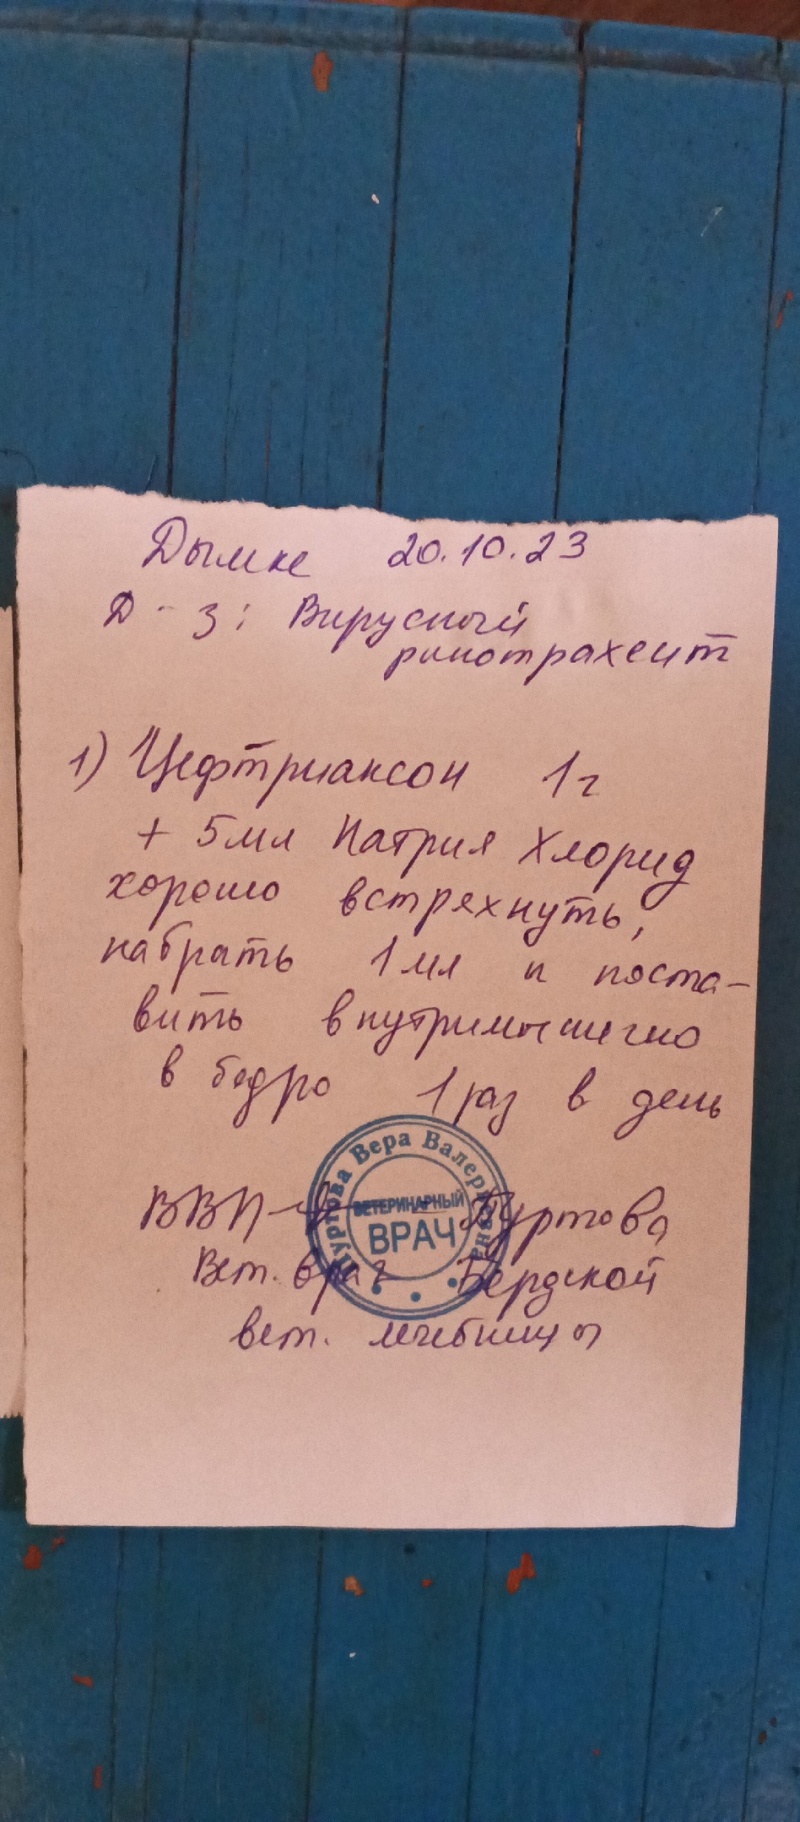 Дымке 20.10.23
Д-з: Вирусный
ринотрахеит
1) Цефтриаксон 1г
+ 5мл Натрия Хлорид
хорошо встряхнуть,
набрать 1мл и поста-
вить внутримышечно
в бедро 1 раз в день
Вера Валерьевна
ВЕТЕРИНАРНЫЙ
ВРАЧ
Вет. врач Бердской
вет. лечебницы